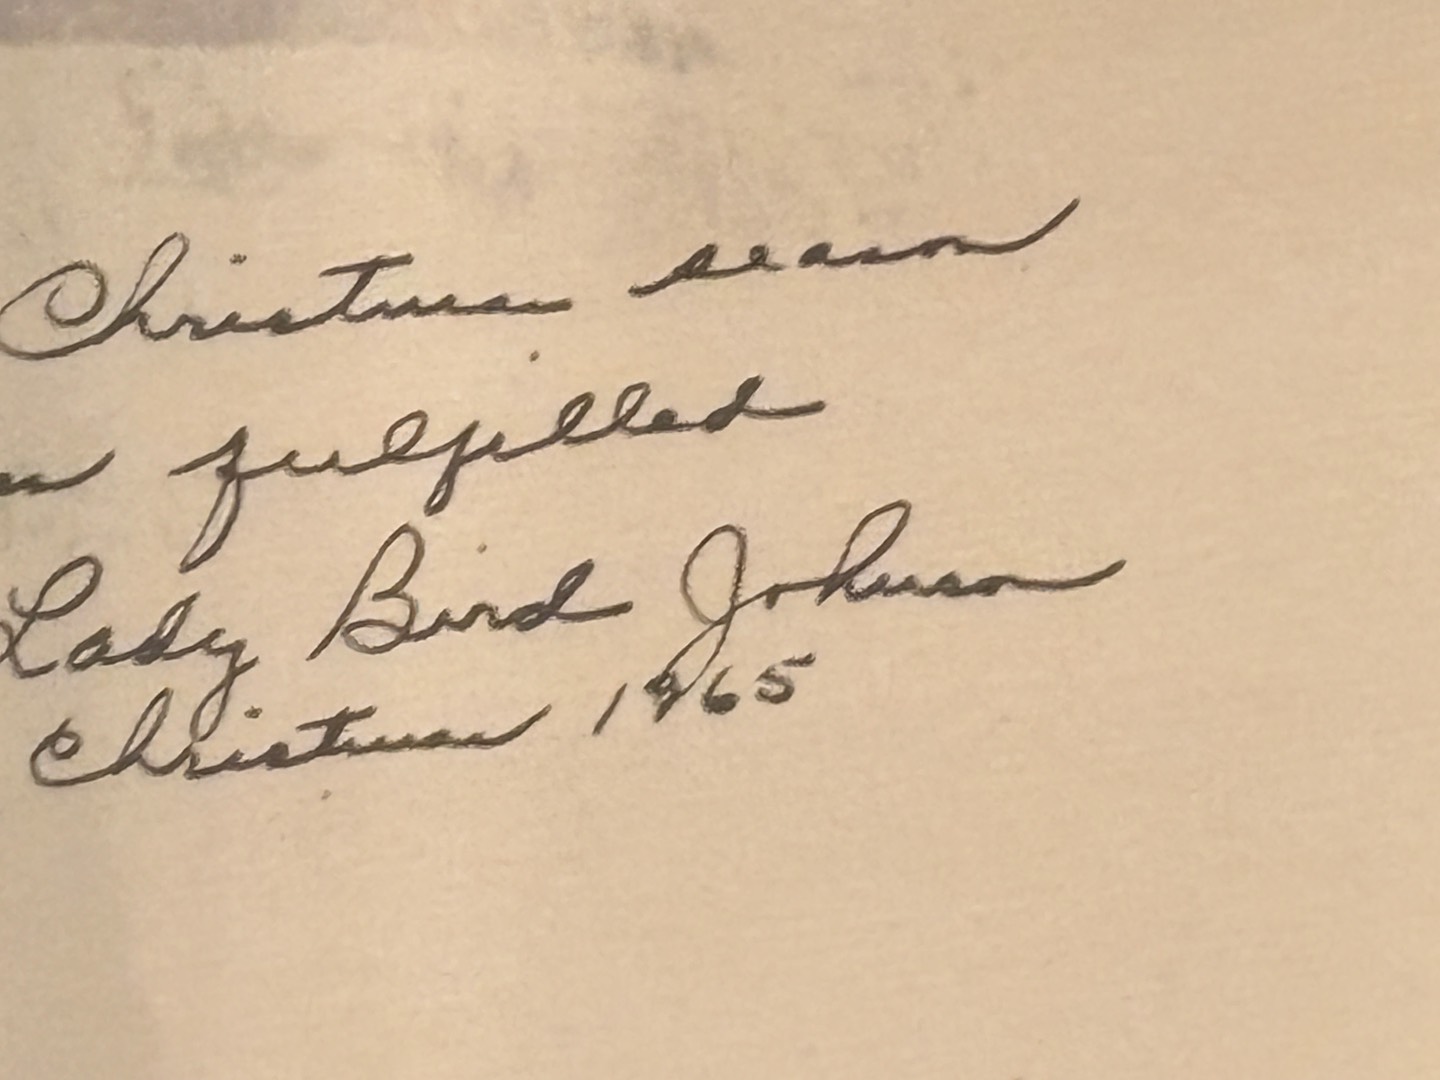 Christmas season
fulfilled
Lady Bird Johnson
Christmas 1965